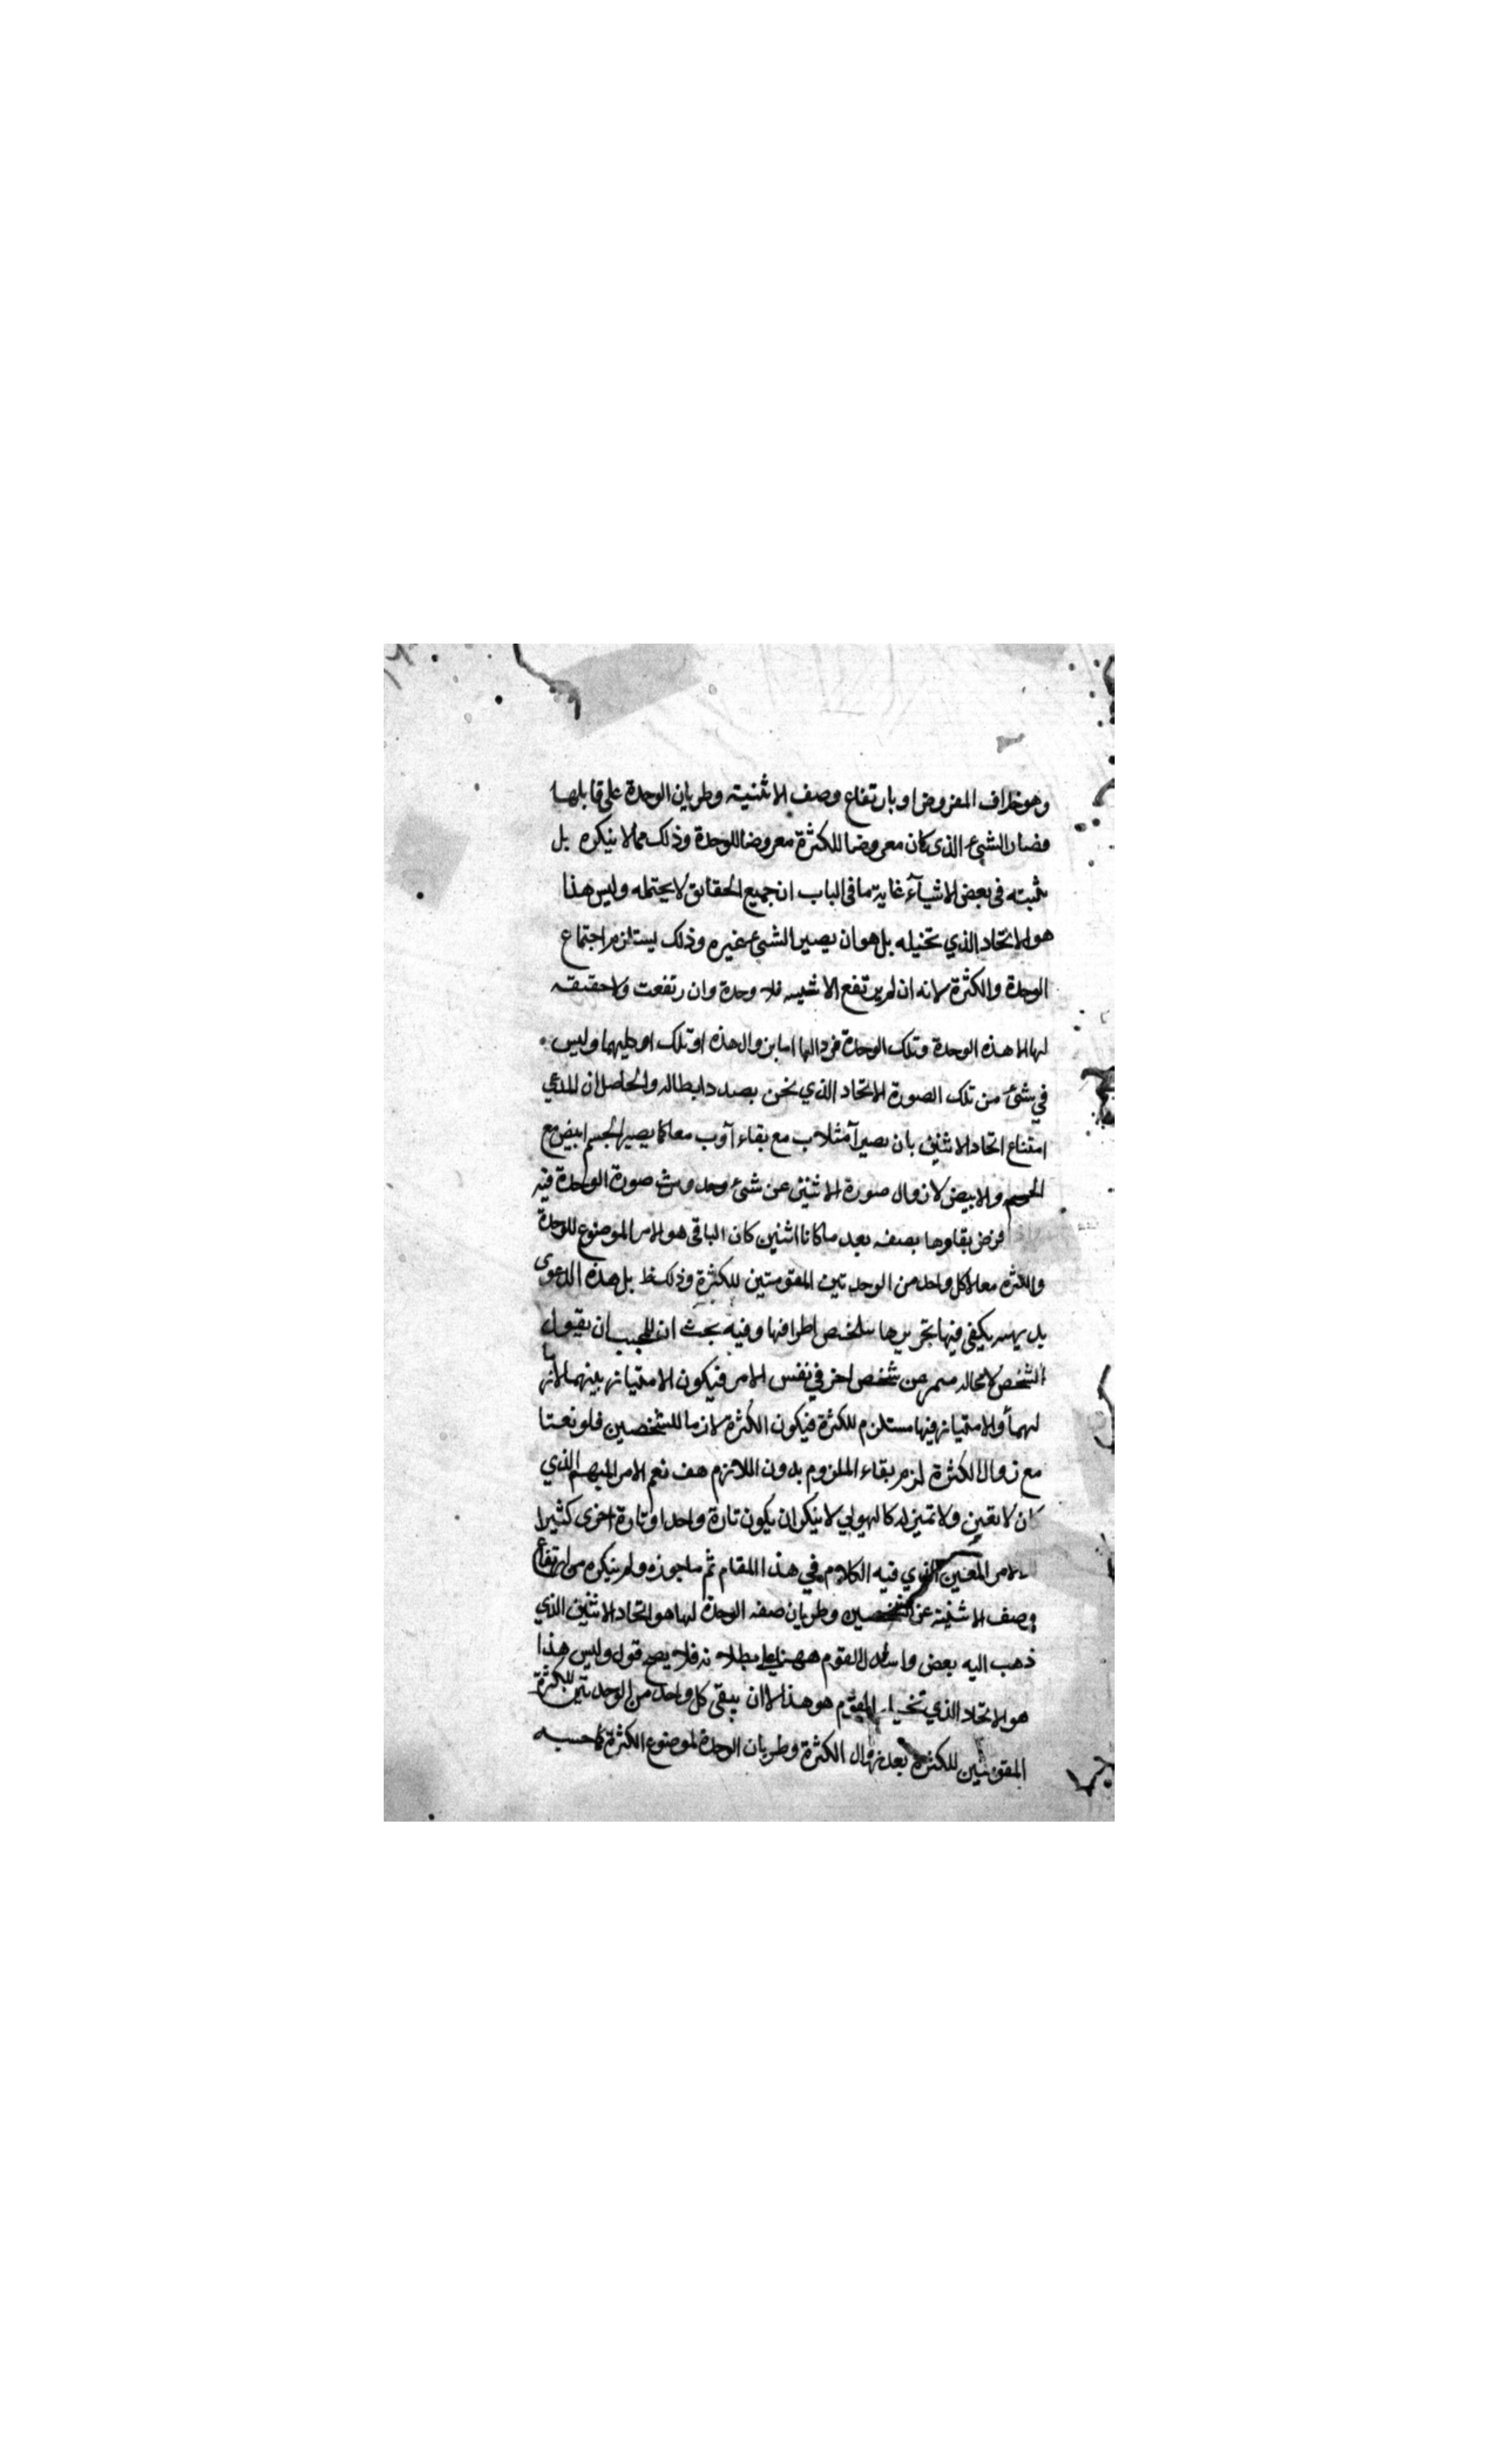 وهو خلاف المفروض او بارتفاع وصف الاثنينية وطريان الوحدة على قابلها
فصار الشيء الذي كان معروضا للكثرة معروضا للوحدة وذلك مما لا ينكره بل
يثبته في بعض الاشياء غاية ما في الباب ان جميع الحقائق لا يحتمله وليس هذا
هو الاتحاد الذي تخيله بل هو ان يصير الشيء غيره وذلك يستلزم اجتماع
الوحدة والكثرة لانه ان لم يرتفع الاثنينية فلا وحدة وان رتفعت ولا حقيقة
لها الا هذه الوحدة وتلك الوحدة فزوالها اما بزوال هذه او تلك او كليهما وليس
في شئ من تلك الصورة الاتحاد الذي نحن بصدد ابطاله والحاصل ان المدعي
امتناع اتحاد الاثنين بان يصير آ مثلا ب مع بقاء آ وب معا كما يصير الجسم ابيض مع
الجسم والابيض لان زوال صورة الاثنين عن شئ وحدوث صورة الوحدة فيه
فرض بقاوها بصفة بعد ما كانا اثنين كان الباقي هو الامر الموضوع للوحدة
والكثرة معا لا كل واحد من الوحدتين المقومتين للكثرة وذلك ظ بل هذه الدعوى
بديهية يكفي فيها تجريدها اطرافها وفيه بحث ان للمجيب ان يقول
الشخص لا محالة عن شخص اخر في نفس الامر فيكون الامتياز بينهما لازما
لهما والامتياز فيها مستلزم للكثرة فيكون الكثرة لازما للشخصين فلو
مع زوال الكثرة لزم بقاء الملزوم بدون اللازم هف نعم الامر المبهم الذي
كان لا تعين ولا تميز له كالهيولي لا ينكر ان يكون تارة واحدا وتارة اخرى كثيرا
لا الامر المعين الذي فيه الكلام في هذا المقام ثم ما جوزه ولم ينكره من ارتفاع
وصف الاثنينية عن الشخصين وطريان صفة الوحدة لها هو اتحاد الاثنين الذي
ذهب اليه بعض القوم ههنا بطلانه فلا يصح قوله وليس هذا
هو الاتحاد الذي القوم هو هذا لا ان يبقى كل واحد من الوحدتين للكثرة
المقومتين للكثرة بعد زوال الكثرة وطريان الوحدة لموضوع الكثرة كما حسبه